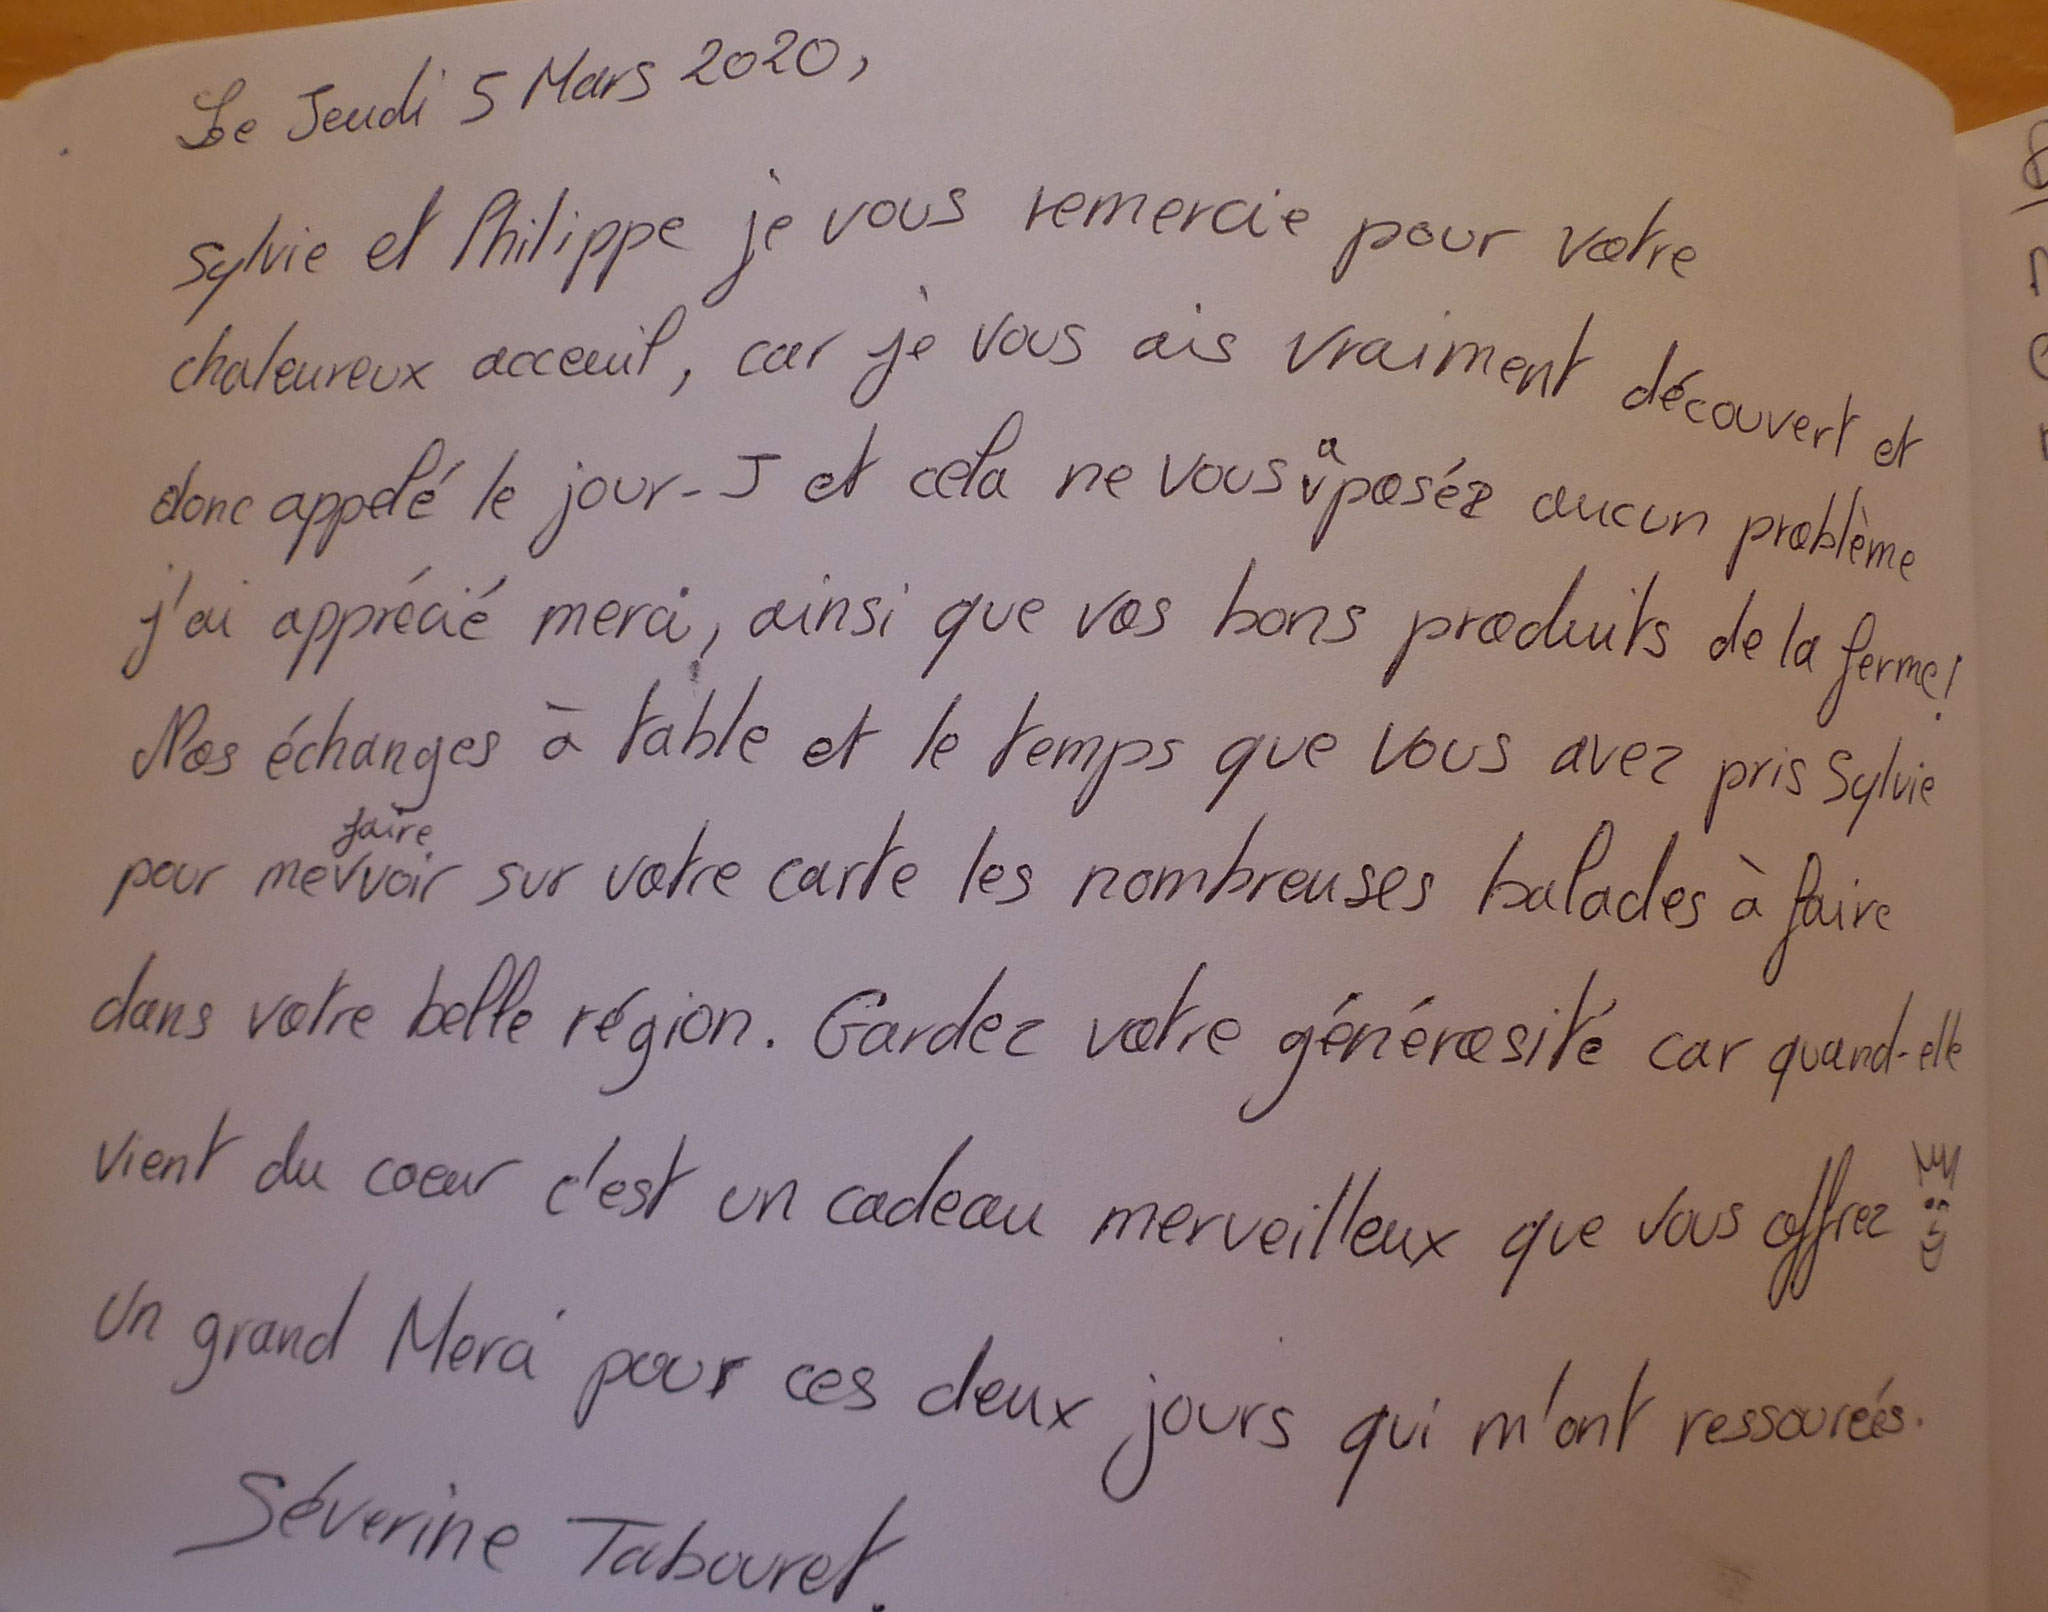 Le Jeudi 5 Mars 2020,
Sylvie et Philippe je vous remercie pour votre
chaleureux acceuil, car je vous ais vraiment découvert et
donc appelé le jour-J et cela ne vous a posés aucun problème
j'ai apprécié merci, ainsi que vos bons produits de la ferme!
Nos échanges à table et le temps que vous avez pris Sylvie
pour me faire voir sur votre carte les nombreuses balades à faire
dans votre belle région. Gardez votre générosité car quand-elle
vient du coeur c'est un cadeau merveilleux que vous offrez
Un grand Merci pour ces deux jours qui m'ont ressourcés.
Séverine Tabouret.